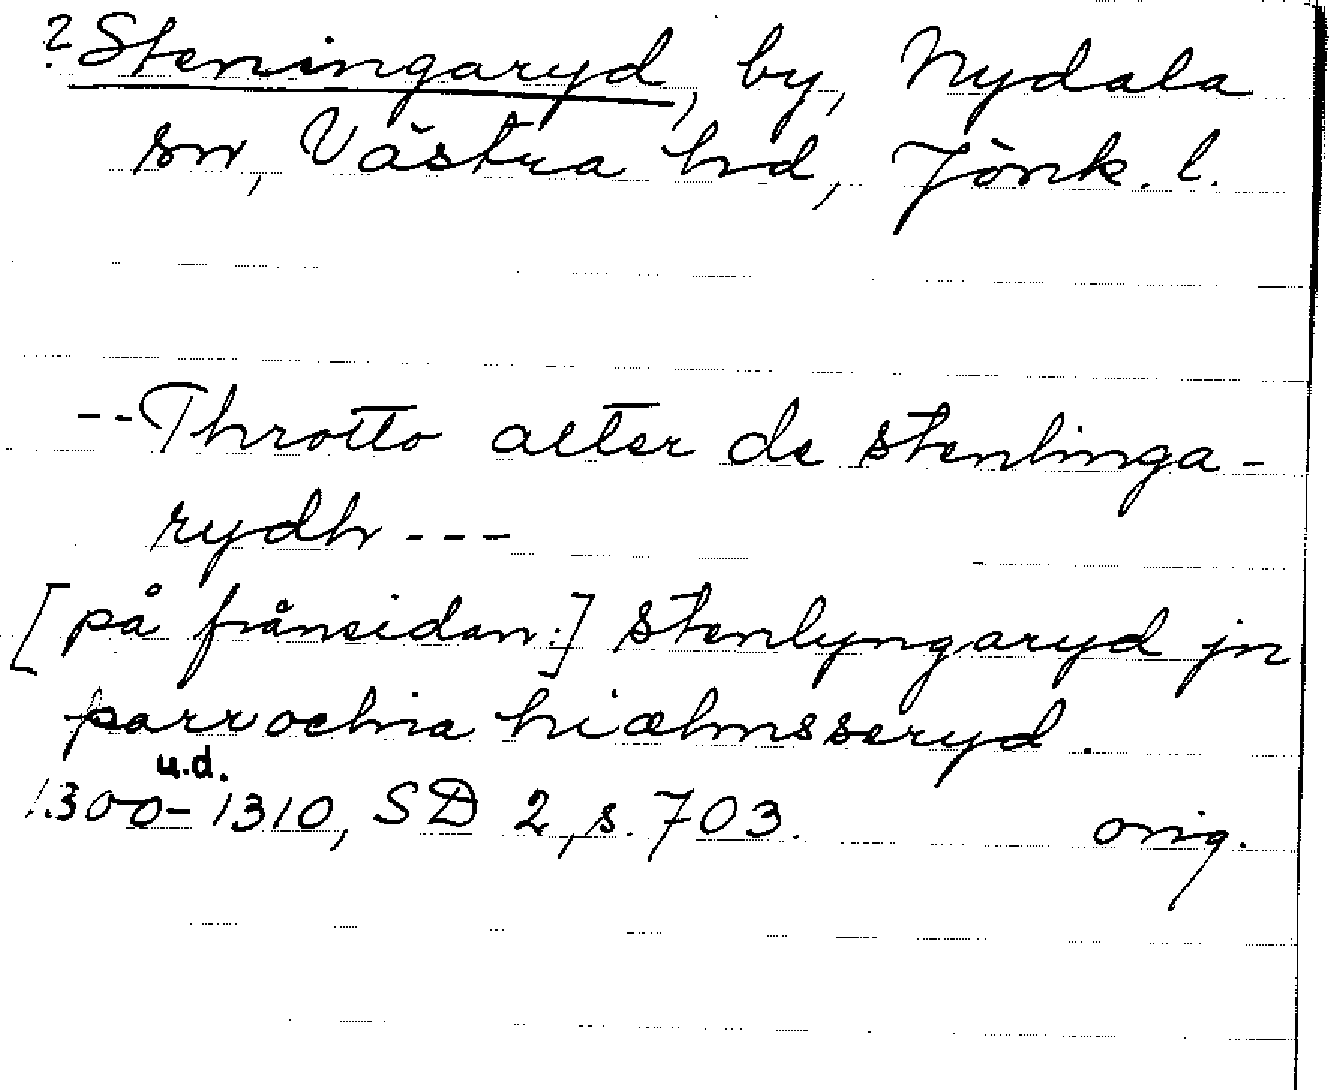 ? Steningaryd, by, Nydala
sn, Västra hd, Jönk. l.
--Throtto alter de stenlinga-
rydh ---
[på frånsidan:] stenlyngaryd jn
parrochia hiælmsseryd.
u.d.
1300-1310, SD 2, s. 703. orig.